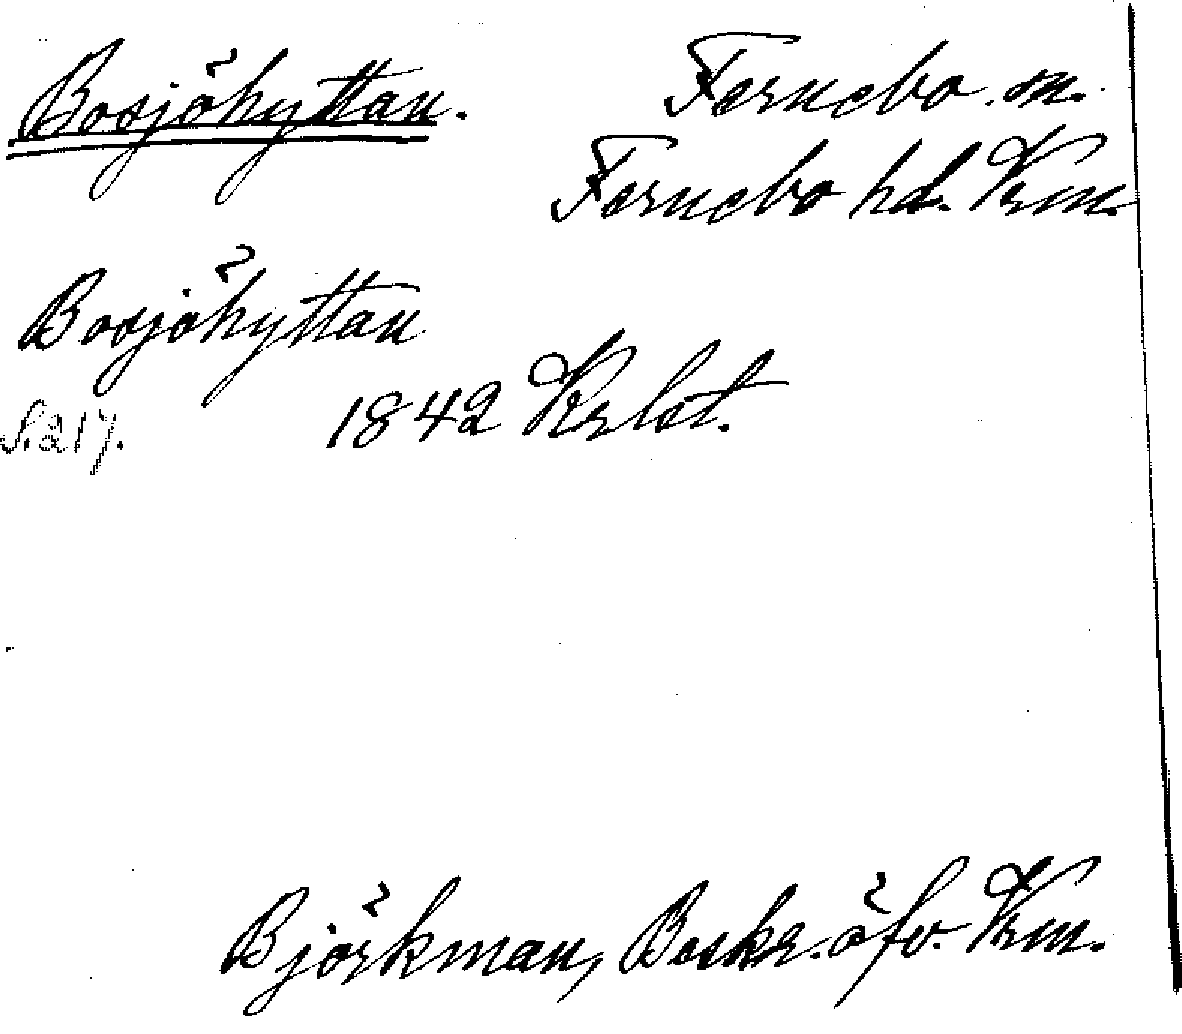 Bosjöhyttan. Fernebo sn.
Fernebo hd. Vrm.
Bosjöhyttan
S. 217. 1842 Krlst.
Björkman, Beskr. öfv. Vrm.